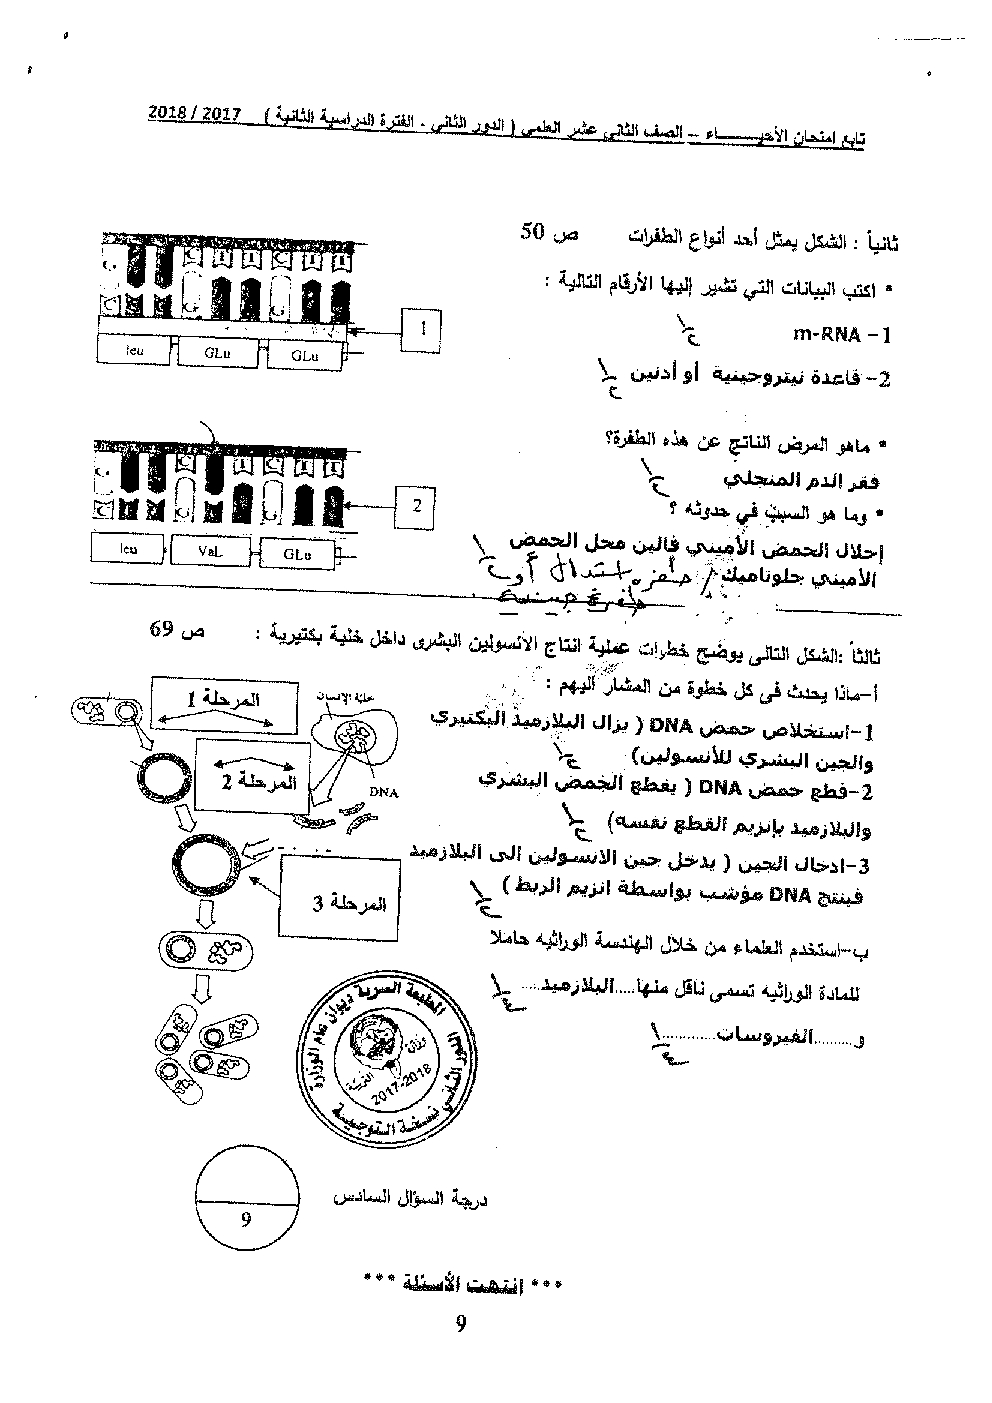 تابع امتحان الأحيـــــاء – الصف الثاني عشر العلمي ( الدور الثاني - الفترة الدراسية الثانية ) 2017 / 2018
ثانياً : الشكل يمثل أحد أنواع الطفرات ص 50
* اكتب البيانات التي تشير إليها الأرقام التالية :
1- m-RNA
2- قاعدة نيتروجينية أو أدنين
1
leu GLu GLu
* ماهو المرض الناتج عن هذه الطفرة؟
فقر الدم المنجلي
* وما هو السبب في حدوثه ؟
إحلال الحمض الأميني فالين محل الحمض
الأميني جلوتاميك / طفرة استبدال أو
طفرة جينية
2
leu VaL GLu
ثالثاً :الشكل التالى يوضح خطوات عملية انتاج الانسولين البشرى داخل خلية بكتيرية : ص 69
أ-ماذا يحدث في كل خطوة من المشار اليهم :
1-استخلاص حمض DNA ( يزال البلازميد البكتيري
والجين البشري للأنسولين)
2-قطع حمض DNA ( يقطع الحمض البشري
والبلازميد بإنزيم القطع نفسه)
3-ادخال الجين ( يدخل جين الانسولين الى البلازميد
فينتج DNA مؤشب بواسطة انزيم الربط )
ب-استخدم العلماء من خلال الهندسة الوراثيه حاملا
للمادة الوراثيه تسمى ناقل منها.....البلازميد.....
و.........الفيروسات............
المرحلة 1
خلية الإنسان
المرحلة 2
DNA
المرحلة 3
المطبعة السرية ديوان عام الوزارة
2017-2018
نسخة التوجيه
درجة السؤال السادس
9
*** انتهت الأسئلة ***
9